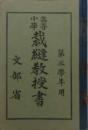 高等
小學
裁縫敎授書
第三學年用
文部省